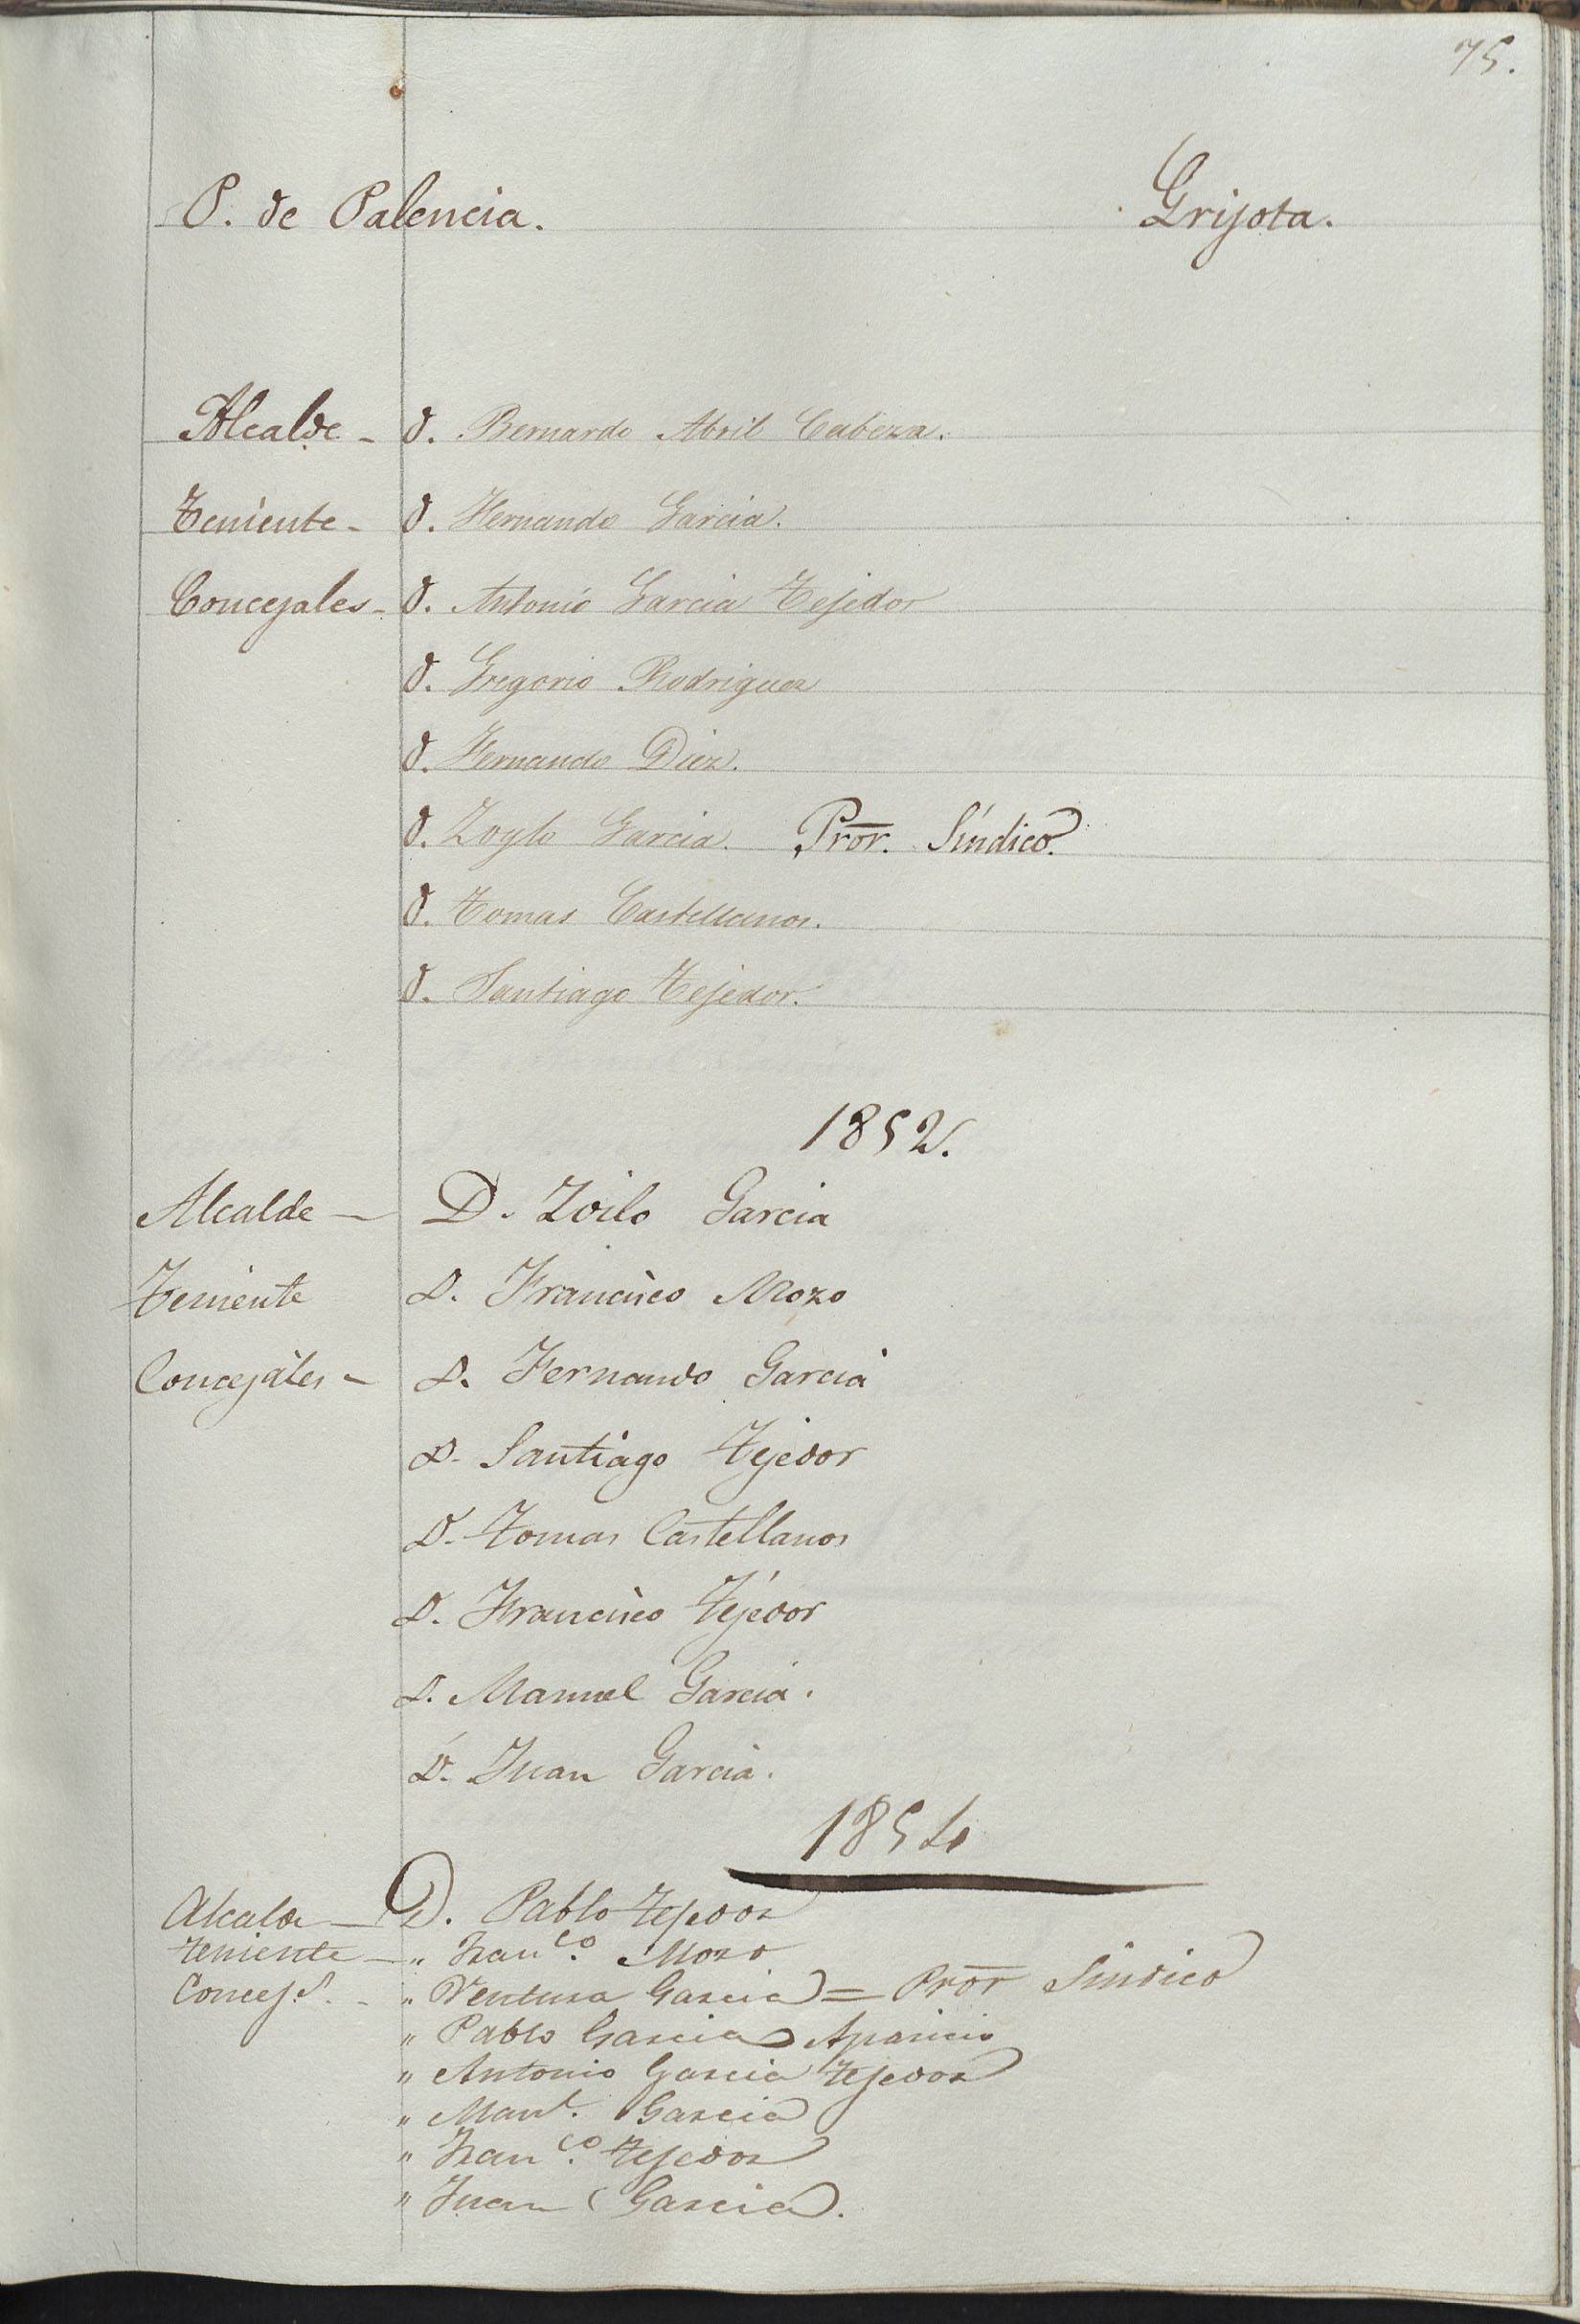 75.
P. de Palencia. Grijota.
Alcalde - D. Bernardo Abril Cabeza.
Teniente - D. Fernando Garcia.
Concejales - D. Antonio Garcia Tejedor
D. Gregorio Rodriguez
D. Fernando Diez.
D. Zoylo Garcia. Pror. Síndico.
D. Tomas Castellanos.
D. Santiago Tejedor.
1852.
Alcalde — D. Zoilo Garcia
Teniente D. Francisco Mozo
Concejales - D. Fernando Garcia
D. Santiago Tejedor
D. Tomas Castellanos
D. Francisco Tejedor
D. Manuel Garcia.
D. Juan Garcia.
1854
Alcalde — D. Pablo Tejedor
Teniente — " Franco. Mozo
Concejs. - " Ventura Garcia = Pror Sindico
" Pablo Garcia Aparicio
" Antonio Garcia Tejedor
" Manl. Garcia
" Franco. Tejedor
" Juan Garcia.